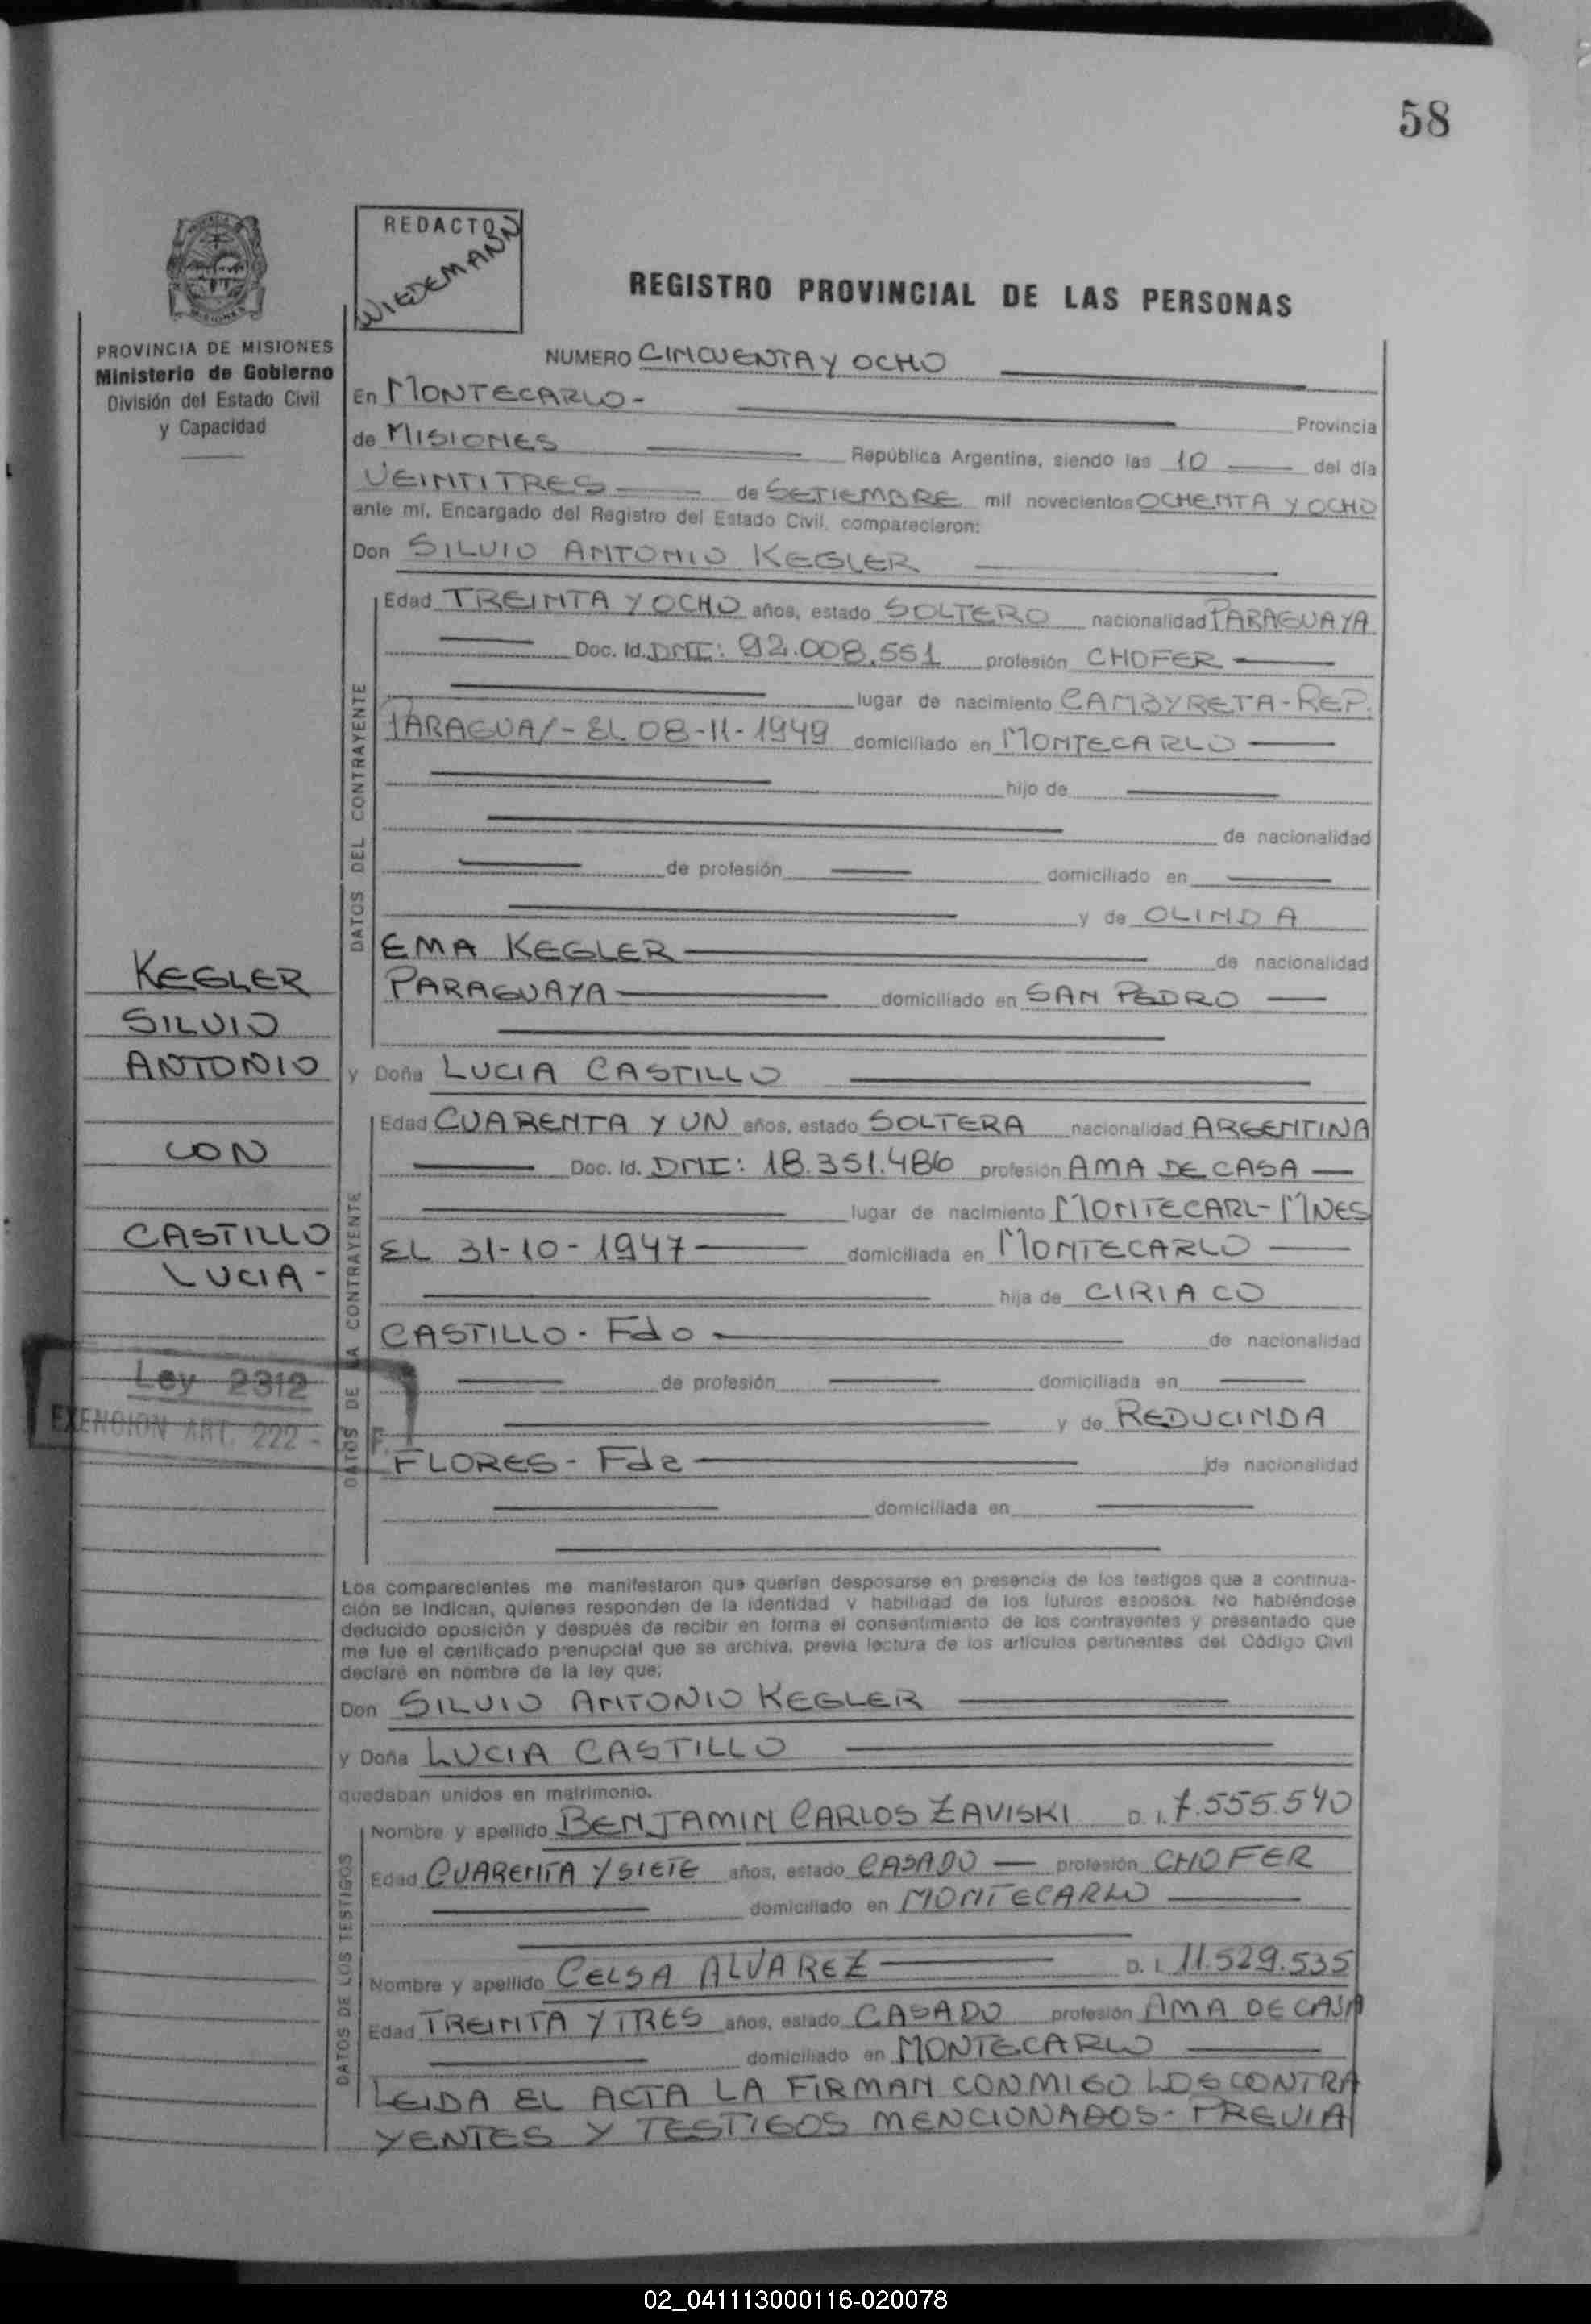 58
REDACTO
WIEDEMANN
REGISTRO PROVINCIAL DE LAS PERSONAS
PROVINCIA DE MISIONES
Ministerio de Gobierno
División del Estado Civil
y Capacidad
NUMERO CINCUENTA Y OCHO
En MONTECARLO-
Provincia
de MISIONES República Argentina, siendo las 10 del día
VEINTITRES de SETIEMBRE mil novecientos OCHENTA Y OCHO
ante mí, Encargado del Registro del Estado Civil, comparecieron:
Don SILVIO ANTONIO KEGLER
DATOS DEL CONTRAYENTE
Edad TREINTA Y OCHO años, estado SOLTERO nacionalidad PARAGUAYA
Doc. Id. DNI: 92.008.551 profesión CHOFER
lugar de nacimiento CAMBYRETA-REP.
PARAGUAY-EL 08-11-1949 domiciliado en MONTECARLO
hijo de
de nacionalidad
de profesión domiciliado en
y de OLINDA
EMA KEGLER de nacionalidad
PARAGUAYA domiciliado en SAN PEDRO
KEGLER
SILVIO
ANTONIO
CON
CASTILLO
LUCIA-
Ley 2312
EXENCION ART. 222-
F.
y Doña LUCIA CASTILLO
DATOS DE LA CONTRAYENTE
Edad CUARENTA Y UN años, estado SOLTERA nacionalidad ARGENTINA
Doc. Id. DNI: 18.351.486 profesión AMA DE CASA
lugar de nacimiento MONTECARL-MNES
EL 31-10-1947 domiciliada en MONTECARLO
hija de CIRIACO
CASTILLO-Fdo de nacionalidad
de profesión domiciliada en
y de REDUCINDA
FLORES-Fda de nacionalidad
domiciliada en
Los comparecientes me manifestaron que querían desposarse en presencia de los testigos que a continua-
ción se indican, quienes responden de la identidad y habilidad de los futuros esposos. No habiéndose
deducido oposición y después de recibir en forma el consentimiento de los contrayentes y presentado que
me fue el certificado prenupcial que se archiva, previa lectura de los artículos pertinentes del Código Civil
declaré en nombre de la ley que:
Don SILVIO ANTONIO KEGLER
y Doña LUCIA CASTILLO
quedaban unidos en matrimonio.
DATOS DE LOS TESTIGOS
Nombre y apellido BENJAMIN CARLOS ZAVISKI D. I. 7.555.540
Edad CUARENTA Y SIETE años, estado CASADO profesión CHOFER
domiciliado en MONTECARLO
Nombre y apellido CELSA ALVAREZ D. I. 11.529.535
Edad TREINTA Y TRES años, estado CASADO profesión AMA DE CASA
domiciliado en MONTECARLO
LEIDA EL ACTA LA FIRMAN CONMIGO LOS CONTRA
YENTES Y TESTIGOS MENCIONADOS- PREVIA
02_041113000116-020078